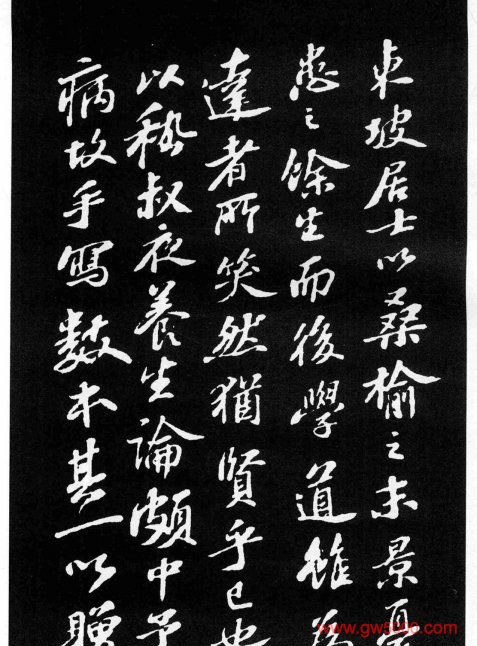 東坡居士以桑榆之末景憂
患之餘生而後學道雖為
達者所笑然猶賢乎已也
以嵇叔夜養生論頗中予
病故手寫數本其一以贈
www.gw5000.com